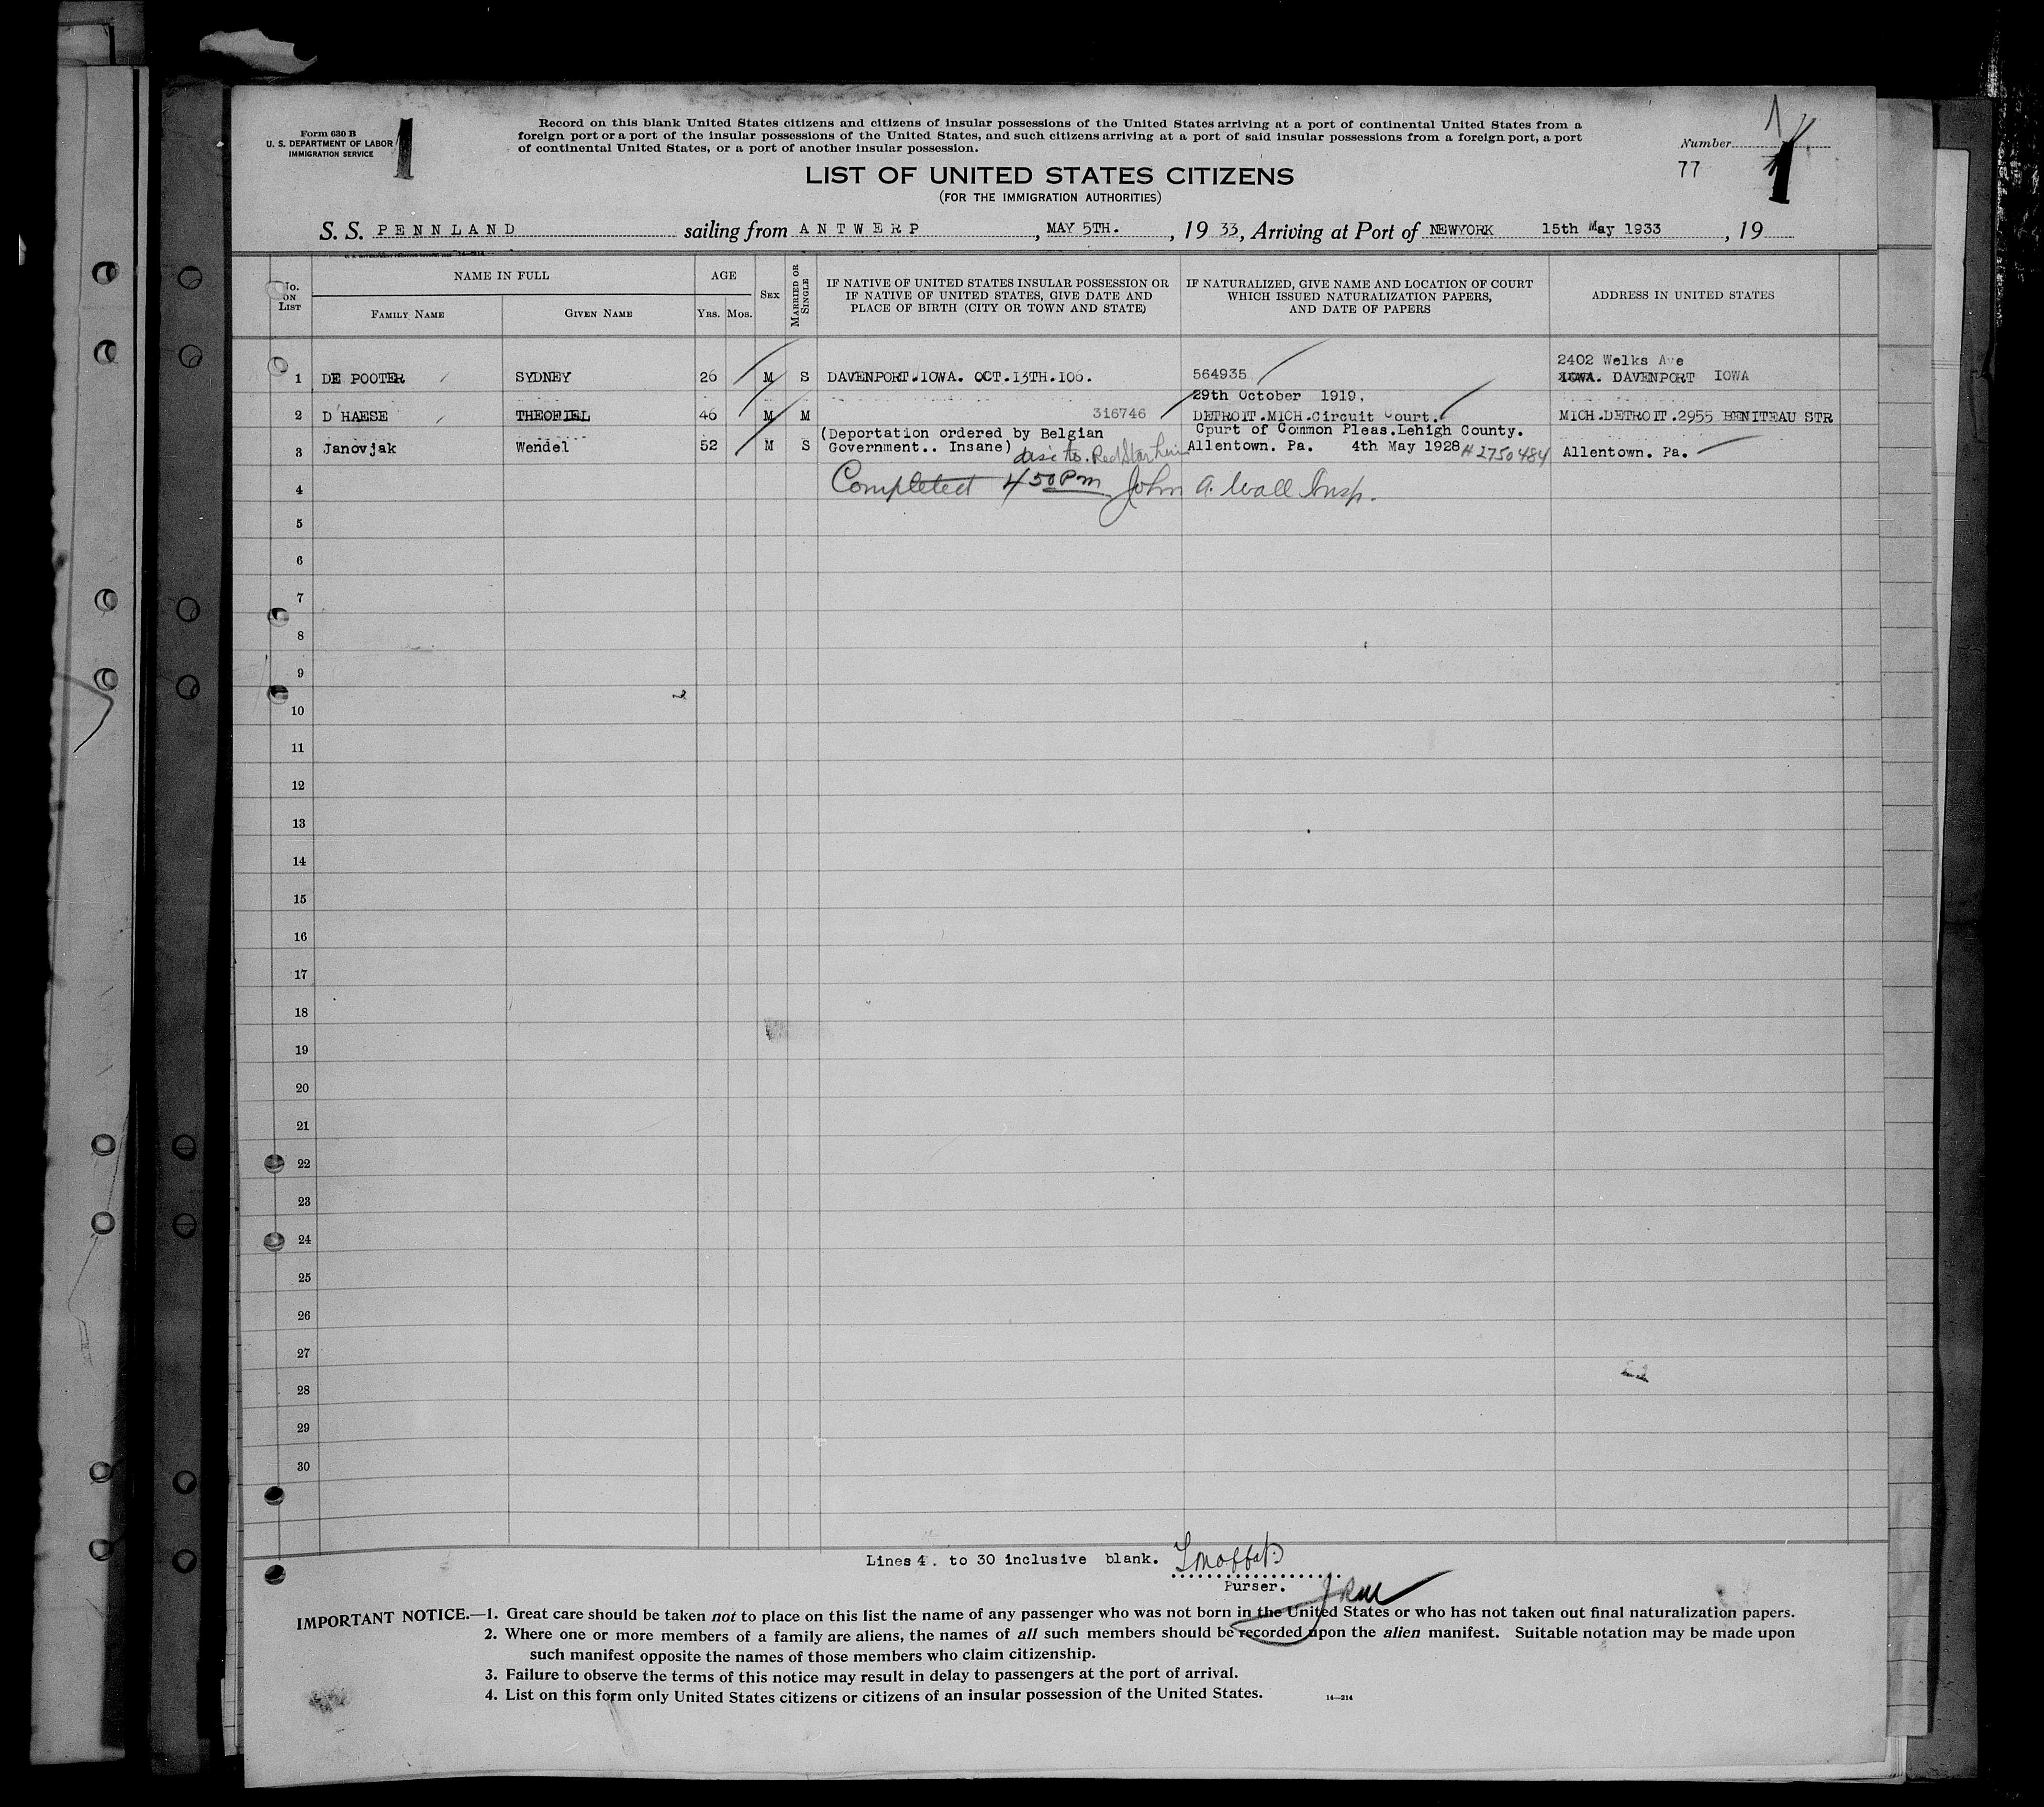 Form 630 B
U. S. DEPARTMENT OF LABOR
IMMIGRATION SERVICE
1
Record on this blank United States citizens and citizens of insular possessions of the United States arriving at a port of continental United States from a
foreign port or a port of the insular possessions of the United States, and such citizens arriving at a port of said insular possessions from a foreign port, a port
of continental United States, or a port of another insular possession.
Number
1
77
1
LIST OF UNITED STATES CITIZENS
(FOR THE IMMIGRATION AUTHORITIES)
S. S. PENNLAND sailing from ANTWERP, MAY 5TH., 19 33, Arriving at Port of NEWYORK 15th May 1933, 19
No. ON LIST
NAME IN FULL
FAMILY NAME
GIVEN NAME
AGE
YRS. MOS.
SEX
MARRIED OR SINGLE
IF NATIVE OF UNITED STATES INSULAR POSSESSION OR
IF NATIVE OF UNITED STATES, GIVE DATE AND
PLACE OF BIRTH (CITY OR TOWN AND STATE)
IF NATURALIZED, GIVE NAME AND LOCATION OF COURT
WHICH ISSUED NATURALIZATION PAPERS,
AND DATE OF PAPERS
ADDRESS IN UNITED STATES
2402 Welks Ave
1 DE POOTER SYDNEY 26 M S DAVENPORT.IOWA. OCT.13TH.106. 564935 IOWA. DAVENPORT IOWA
29th October 1919.
2 D'HAESE THEOFIEL 46 M M 316746 DETROIT.MICH.Circuit Court. MICH.DETROIT.2955 BENITEAU STR
(Deportation ordered by Belgian Cpurt of Common Pleas.Lehigh County.
3 Janovjak Wendel 52 M S Government.. Insane) Red Star Line Allentown. Pa. 4th May 1928 # 2750484 Allentown. Pa.
4 Completed 4 50 Pm John A. Wall Insp.
5
6
7
8
9
10
11
12
13
14
15
16
17
18
19
20
21
22
23
24
25
26
27
28
29
30
Lines 4. to 30 inclusive blank.
Purser.
IMPORTANT NOTICE.—1. Great care should be taken not to place on this list the name of any passenger who was not born in the United States or who has not taken out final naturalization papers.
2. Where one or more members of a family are aliens, the names of all such members should be recorded upon the alien manifest. Suitable notation may be made upon
such manifest opposite the names of those members who claim citizenship.
3. Failure to observe the terms of this notice may result in delay to passengers at the port of arrival.
4. List on this form only United States citizens or citizens of an insular possession of the United States.
14—214